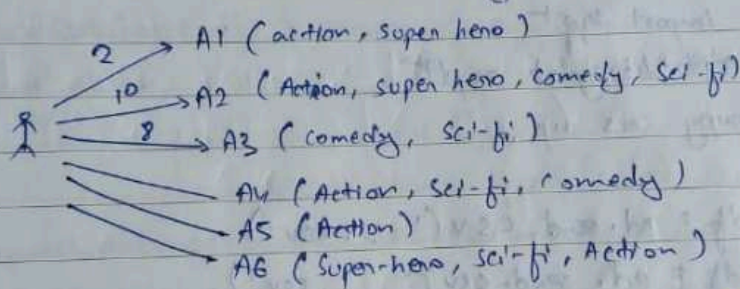 2 A1 (action, super hero)
10 A2 (Action, super hero, comedy, sci-fi)
8 A3 (comedy, sci-fi)
A4 (Action, sci-fi, comedy)
A5 (Action)
A6 (Super-hero, sci-fi, Action)